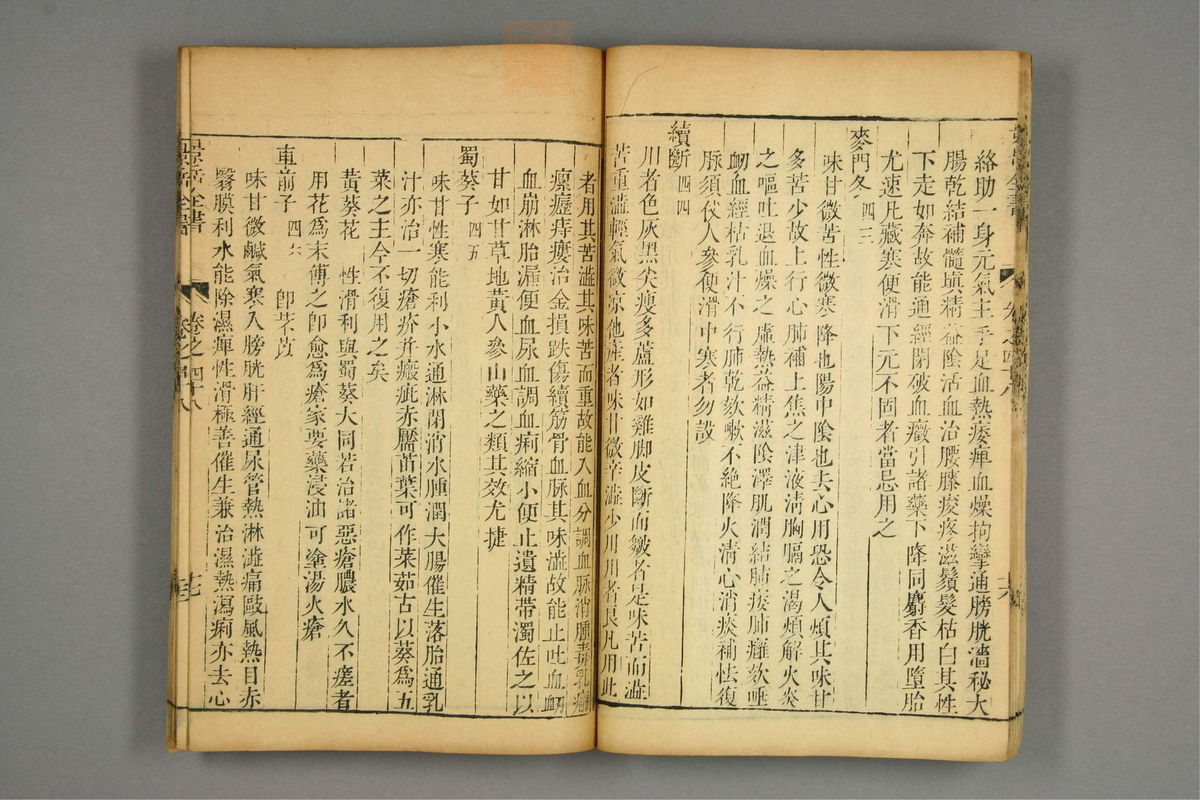 絡助一身元氣主手足血熱痿痺血燥拘攣通膀胱濇秘大
腸乾結補髓塡精益陰活血治腰膝痠疼滋鬚髮枯白其性
下走如奔故能通經閉破血癥引諸藥下降同麝香用墮胎
尤速凡藏寒便滑下元不固者當忌用之
麥門冬四三
味甘微苦性微寒降也陽中陰也去心用恐令人煩其味甘
多苦少故上行心肺補上焦之津液清胸膈之渴煩解火炎
之嘔吐退血燥之虛熱益精滋陰澤肌潤結肺痿肺癰欬唾
衂血經枯乳汁不行肺乾欬嗽不絕降火清心消痰補怯復
脉須仗人參便滑中寒者勿設
續斷四四
川者色灰黑尖瘦多蘆形如雞脚皮斷而皺者是味苦而澁
苦重澁輕氣微凉他產者味甘微辛澁少用川者良凡用此
者用其苦澁其味苦而重故能入血分調血脉消腫毒乳癰
瘰癧痔瘻治金損跌傷續筋骨血脉其味澁故能止吐血衂
血崩淋胎漏便血尿血調血痢縮小便止遺精帶濁佐之以
甘如甘草地黃人參山藥之類其效尤捷
蜀葵子四五
味甘性寒能利小水通淋閉消水腫潤大腸催生落胎通乳
汁亦治一切瘡疥并瘢疵赤靨苗葉可作菜茹古以葵爲五
菜之主今不復用之矣
黃葵花 性滑利與蜀葵大同若治諸惡瘡膿水久不瘥者
用花爲末傅之卽愈爲瘡家要藥浸油可塗湯火瘡
車前子四六 卽芣苡
味甘微鹹氣寒入膀胱肝經通尿管熱淋澁痛歐風熱目赤
翳膜利水能除濕痺性滑極善催生兼治濕熱瀉痢亦去心
景岳全書
卷之四十八